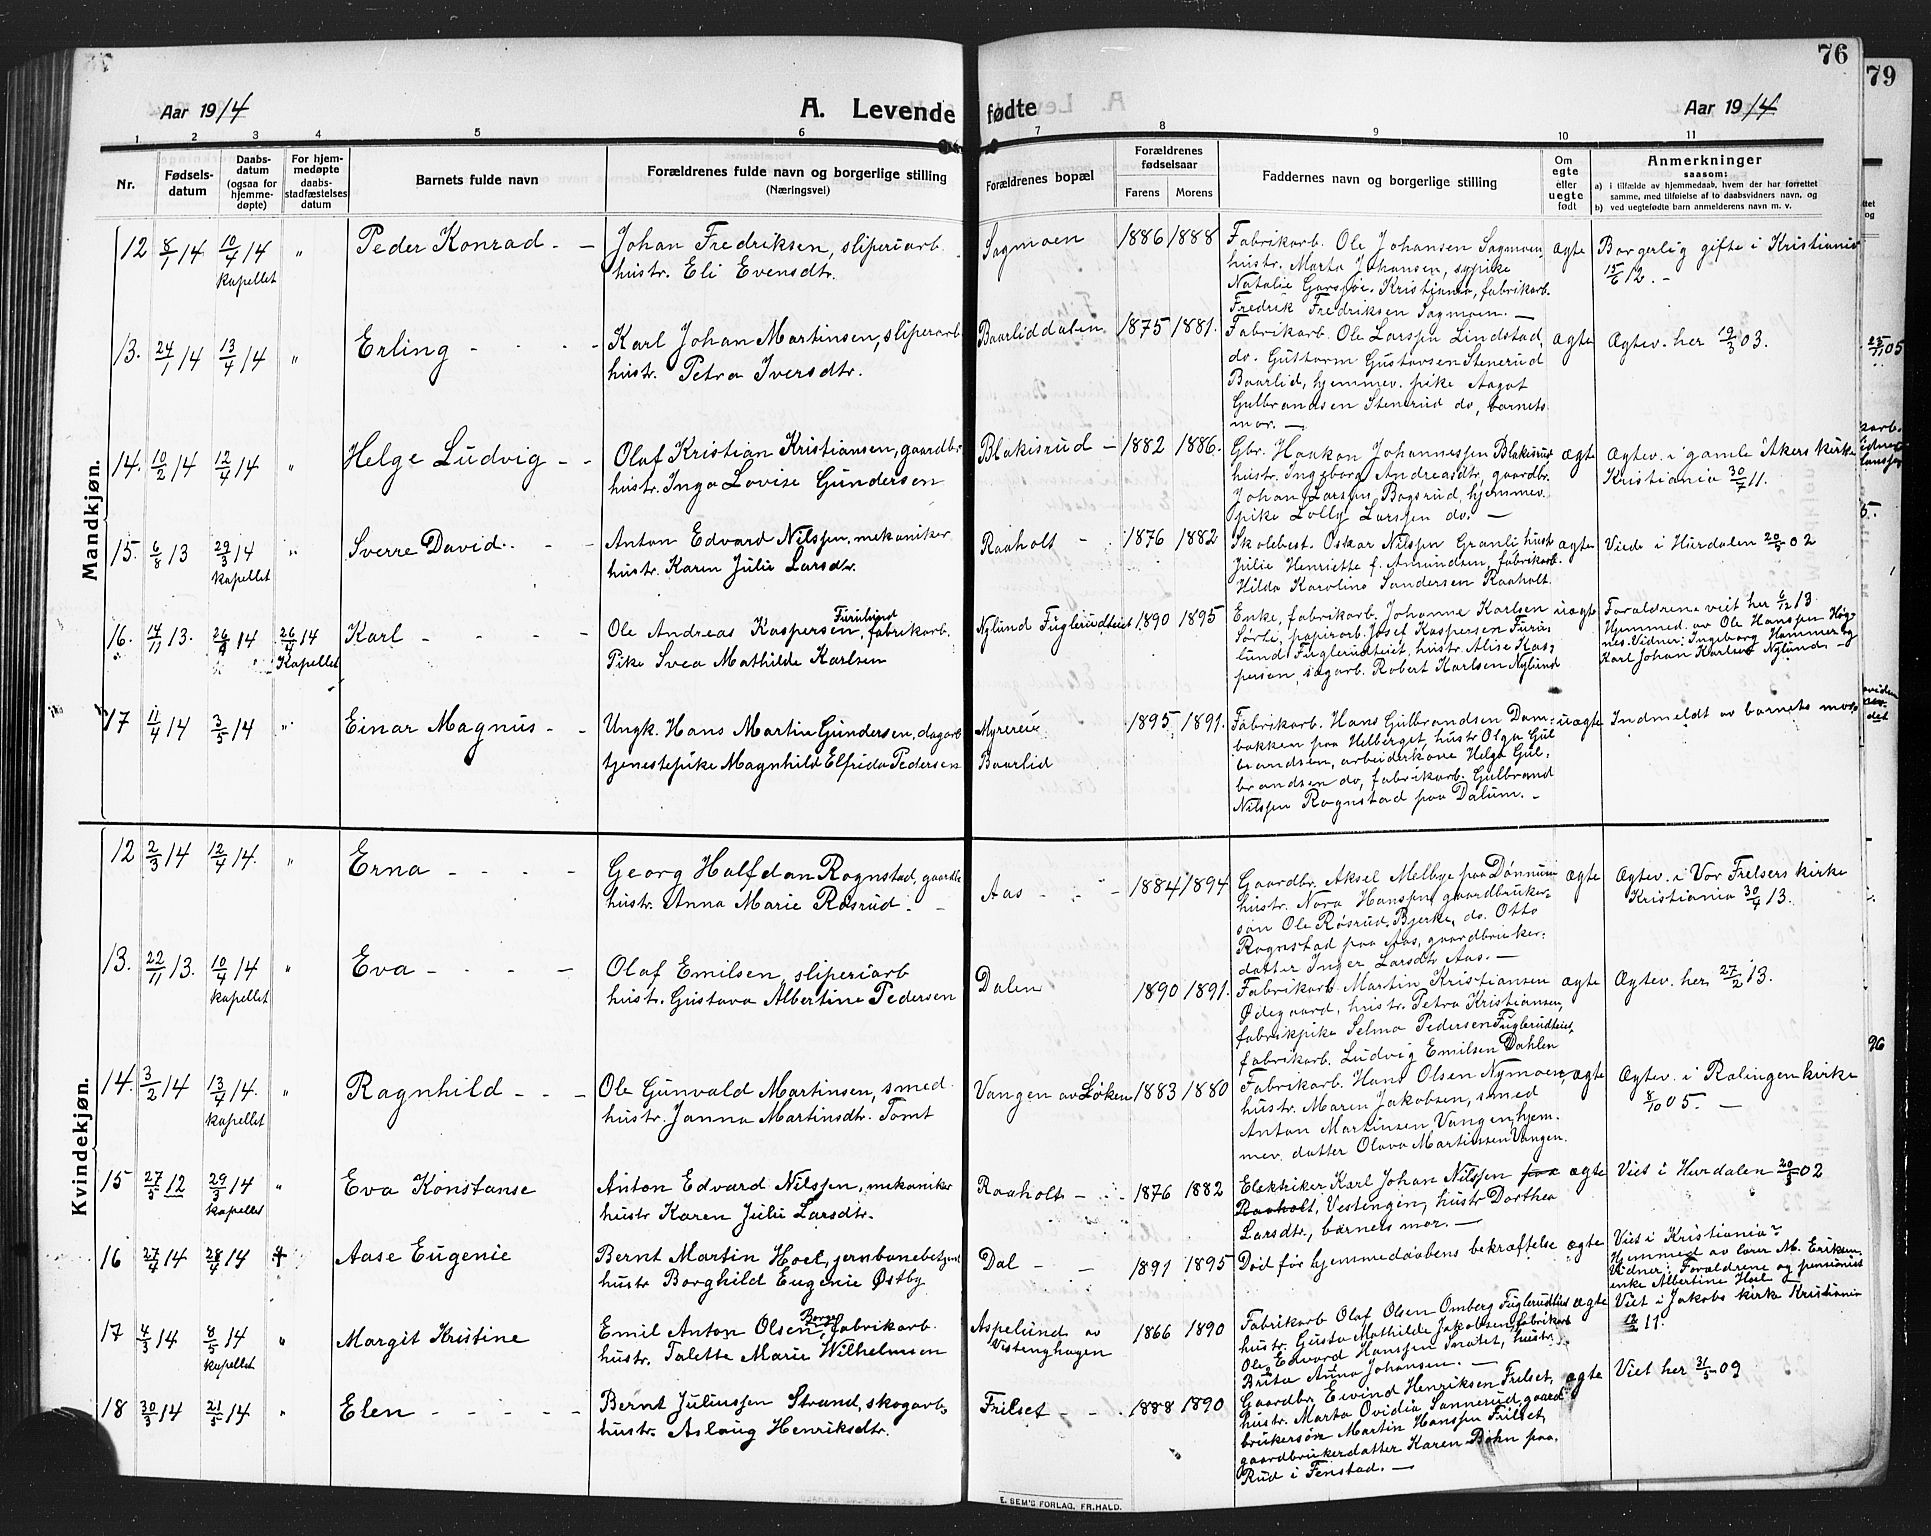 76
79
Aar 1914
A. Levende fødte
Aar 1914
1 2 3 4 5 6 7 8 9 10 11
Nr.
Fødsels-
datum
Daabs-
datum
(ogsaa for
hjemme-
døpte)
For hjem-
medøpte
daabs-
stadfæstelses
datum
Barnets fulde navn
Forældrenes fulde navn og borgerlige stilling
(Næringsvei)
Forældrenes bopæl
Forældrenes
fødselsaar
Farens
Morens
Faddernes navn og borgerlige stilling
Om
egte
eller
uegte
født
Anmerkninger
saasom:
a) i tilfælde av hjemmedaab, hvem der har forrettet
samme, med tilføielse af to daabsvidners navn, og
b) ved uegtefødte barn anmelderens navn m. v.
Mandkjøn.
12 8/1 14 10/4 14 " Peder Konrad - - Johan Fredriksen, sliperiarb. Sagmoen 1886 1888 Fabrikarb. Ole Johansen Sagmoen, ægte Borgerlig gifte i Kristiania
kapellet hustr. Eli Evensdtr. hustr. Marta Johansen, sypike 15/6 12. -
Natalie Garsjøe, Kristiania, fabrikarb.
Fredrik Fredriksen Sagmoen. -
13. 24/1 14 13/4 14 " Erling - - - - Karl Johan Martinsen, sliperiarb. Baarliddalen 1875 1881. Fabrikarb. Ole Larsen Lindstad, ægte Ægtev. her 19/3 03.
hustr. Petra Iversdtr. do. Guttorm Gustavsen Stenerud
Baarlid, hjemmev. pike Aagot
Gulbrandsen Stenerud do, barnets
mor. -
14. 10/2 14 12/4 14 " Helge Ludvig - - Olaf Kristian Kristiansen, gaardbr. Blakisrud - 1882 1886. Gbr. Haakon Johannessen Blakisrud ægte Ægtev. i gamle Akers kirke
hustr. Inga Lovise Gundersen hustr. Ingeborg Andreasdtr, gaardbr. Kristiania 30/7 11.
Johan Larsen Bagsrud, hjemmev.
pike Lolly Larsen do. -
15. 6/8 13 29/3 14 " Sverre David. - - Anton Edvard Nilssen, mekaniker Raaholt - - 1876 1882 Skolebest. Oskar Nilssen Granli hustr. ægte Viede i Hurdalen 20/5 02
kapellet hustr. Karen Julie Larsdtr. Julie Henriette f. Amundsen, fabrikarb.
Hilda Karoline Sandersen Raaholt.
16. 14/11 13. 26/4 14 26/4 14 Karl - - - - Ole Andreas Kaspersen Furulund, fabrikarb. Nylund Fuglerudteiet 1890 1895 Enke, fabrikarb. Johanne Karlsen uægte Forældrene viet her 6/12 13.
Kapellet Pike Svea Mathilde Karlsen Sørli, papirarb. Josef Kaspersen Furu- Hjemmed. av Ole Hanssen Høg-
lund Fuglerudteiet, hustr. Alise Kas- nes. Vidner: Ingeborg Hammer og
persen, sagarb. Robert Karlsen Nylund Karl Johan Karlsen Nylund -
17 11/4 14 3/5 14 " Einar Magnus - - Ungk. Hans Martin Gundersen, dagarb. Myrereie 1895 1891. Fabrikarb. Hans Gulbrandsen Dam- uægte Indmeldt av barnets mor.
tjenestepike Magnhild Elfrida Pedersen Baarlid bakken paa Helberget, hustr Olga Gul-
brandsen, arbeiderkone Helga Gul-
brandsen do, fabrikarb. Gulbrand
Nilssen Rognstad paa Dalum. -
Kvindekjøn.
12 2/3 14 12/4 14. " Erna - - - - Georg Halfdan Rognstad, gaardbr. Aas - - - 1884 1894 Gaardbr. Aksel Melbye paa Dønnum ægte Ægtev. i Vor Frelsers kirke
hustr. Anna Marie Røsrud - - hustr. Nora Hanssen, gaardbruker- Kristiania 30/4 13.
søn Ole Røsrud, Bjerke, do. Otto
Rognstad paa Aas, gaardbruker-
datter Inger Larsdtr Aas. -
13. 22/11 13. 10/4 14 " Eva - - - - Olaf Emilsen, sliperiarb Dalen 1890 1891. Fabrikarb. Martin Kristiansen ægte Ægtev. her 27/2 13.
kapellet hustr. Gustava Albertine Pedersen Ødegaard, hustr. Petra Kristiansen,
fabrikpike Selma Pedersen Fuglerudteiet,
fabrikarb. Ludvig Emilsen Dahlen
14. 3/2 14 13/4 14. " Ragnhild - - - Ole Gunvald Martinsen, smed. Vangen av Løken 1883 1880 Fabrikarb. Hans Olsen Nymoen, ægte Ægtev. i Rælingen kirke
kapellet hustr. Janna Martinsdtr. Tomt hustr. Maren Jakobsen, smed 8/10 05. -
Anton Martinsen Vangen, hjem-
mev. datter Olava Martinssen Vangen.
15 27/5 12 29/3 14 " Eva Konstanse Anton Edvard Nilssen, mekaniker Raaholt - - - 1876 1882 Elektriker Karl Johan Nilssen paa ægte Viet i Hurdalen 20/5 02
kapellet hustr Karen Julie Larsdtr. Raaholt, Vestengen, hustr Dorthea
Larsdtr., barnets mor. -
16 27/4 14 28/4 14 ✝ Aase Eugenie Bernt Martin Hoel, jernbanebetjent Dal - - 1891 1895 Død før hjemmedaabens bekræftelse ægte Viet i Kristiania?
hustr Borghild Eugenie Østby Hjemmed av lærer M. Eriksen.
Vidner: Forældrene og pensionist
enke Albertine Hoel -
17 4/3 14 8/5 14 " Margit Kristine Emil Anton Olsen Berger, fabrikarb. Aspelund av 1866 1890 Fabrikarb Olaf Olsen Omberg Fuglerudteiet ægte Viet i Jakobs kirke Kristiania
kapellet hustr. Talette Marie Wilhelmsen Vestenghagen hustr. Gusta Mathilde Jakobsen, fabrikarb 12/2 11.
Ole Edvard Hanssen, hustr.
Anna Johansen. -
18 30/3 14 21/5 14 " Elen - - - - - Bernt Juliussen Strand, skogarb. Frilset - - 1888 1890 Gaardbr. Eivind Henriksen Frilset, ægte Viet her 31/5 09
hustr. Aslaug Henriksdtr. hustr. Marta Ovidia Sannerud, gaard-
brukersøn Martin Hanssen Frilset,
gaardbrukerdatter Karen Bøhn paa
Rud i Fenstad. -
E. SEM'S FORLAG, FR.HALD.